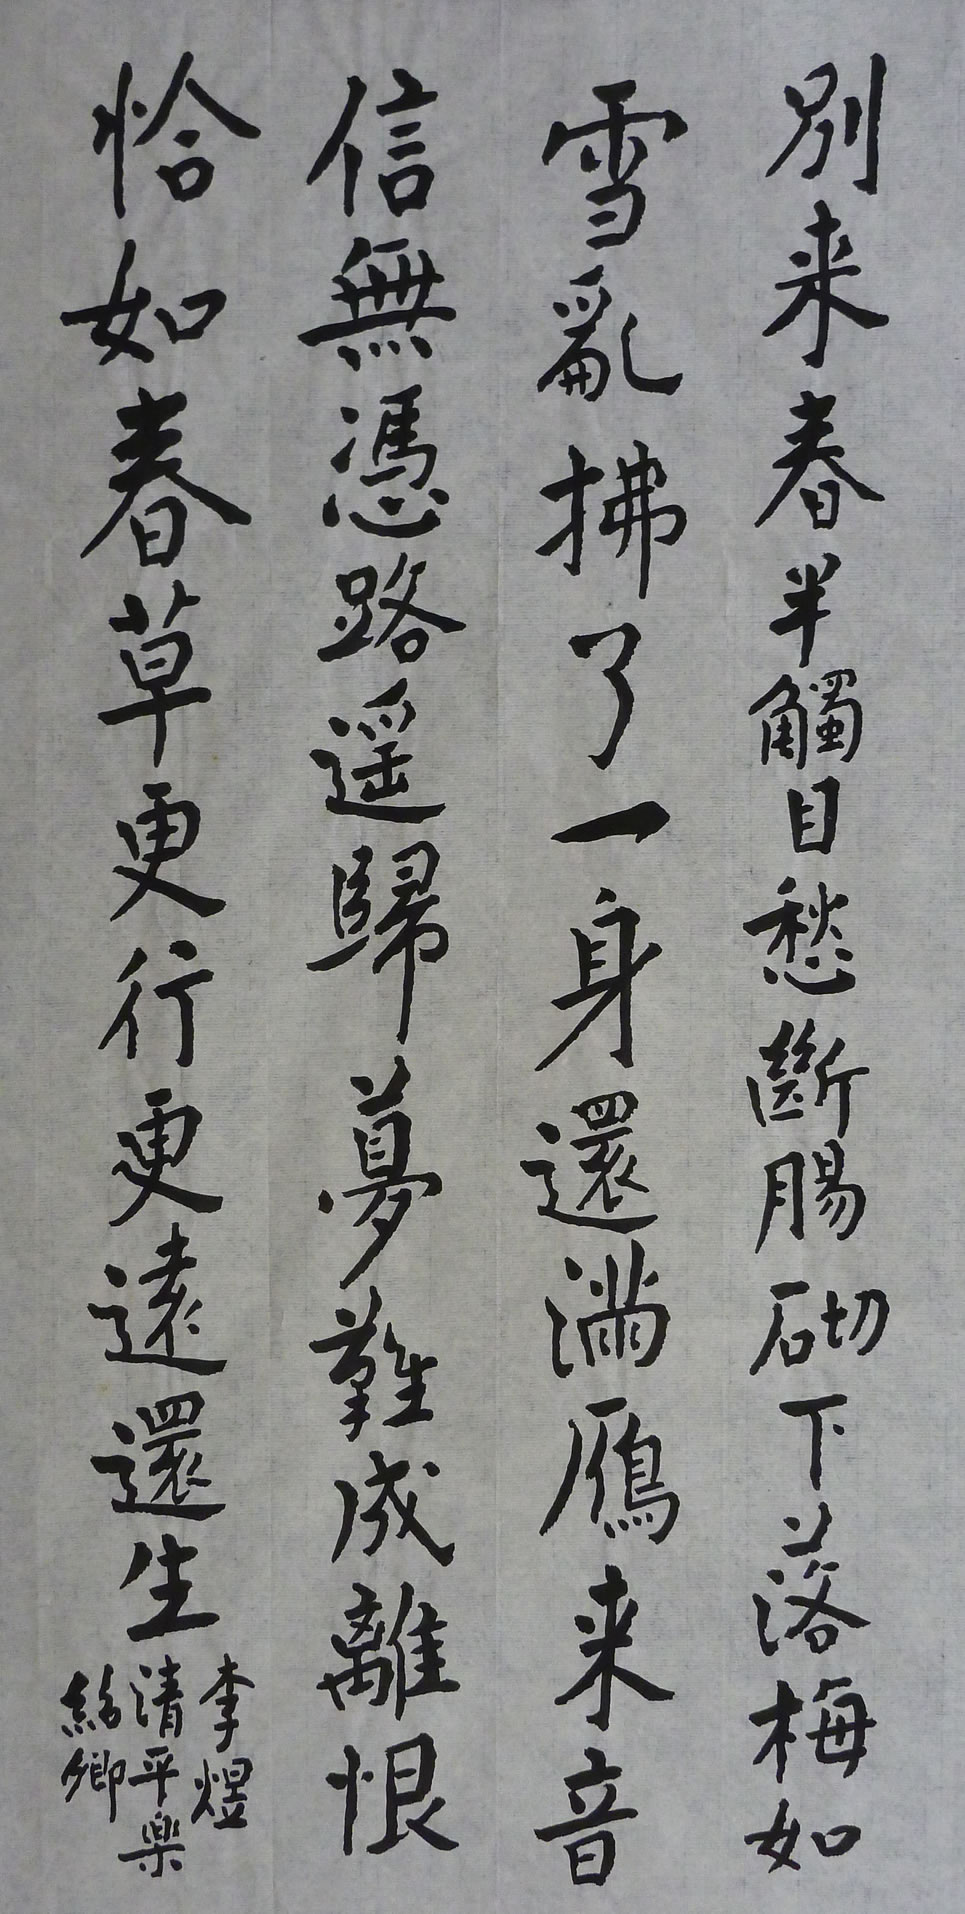 別来春半觸目愁斷腸砌下落梅如
雪亂拂了一身還滿雁来音
信無憑路遥歸夢難成離恨
恰如春草更行更遠還生
李煜
清平樂
紹卿